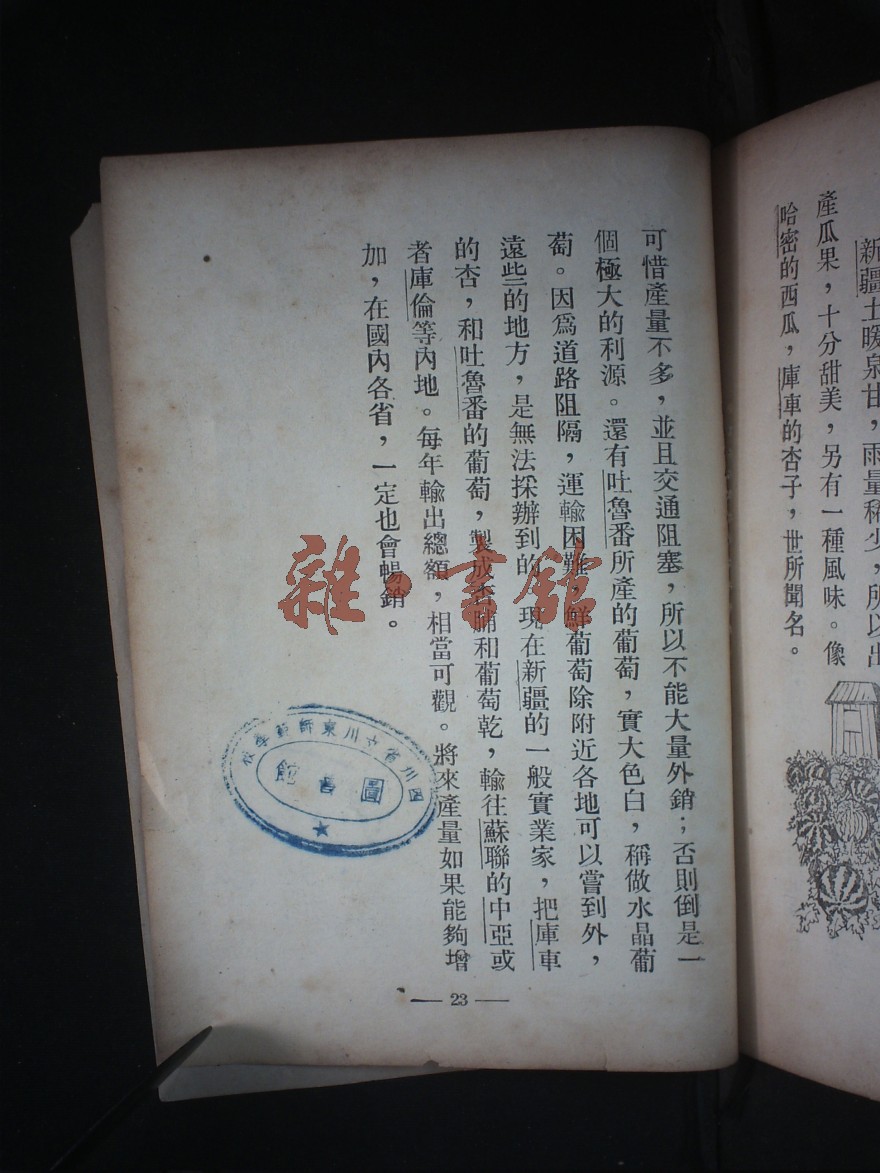 新疆土暖泉甘，雨量稀少，所以出
產瓜果，十分甜美，另有一種風味。像
哈密的西瓜，庫車的杏子，世所聞名。
可惜產量不多，並且交通阻塞，所以不能大量外銷；否則倒是一
個極大的利源。還有吐魯番所產的葡萄，實大色白，稱做水晶葡
萄。因爲道路阻隔，運輸困難，鮮葡萄除附近各地可以嘗到外，
遠些的地方，是無法採辦到的。現在新疆的一般實業家，把庫車
的杏，和吐魯番的葡萄，製成杏脯和葡萄乾，輸往蘇聯的中亞或
者庫倫等內地。每年輸出總額，相當可觀。將來產量如果能夠增
加，在國內各省，一定也會暢銷。
— 23 —
雜·書館
四川省立川東師範學校
圖書館